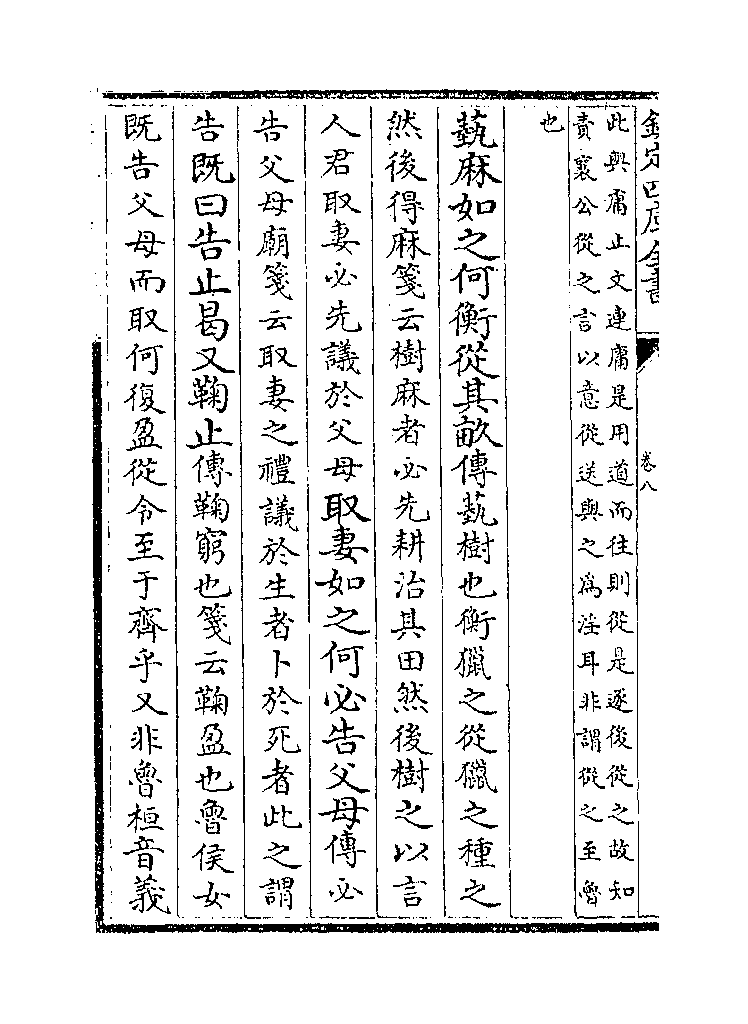 欽定四庫全書
卷八
此與庸止文連庸是用道而往則從是逐後從之故知
責襄公從之言以意從送與之為淫耳非謂從之至魯
也
蓺麻如之何衡從其畝傳蓺樹也衡獵之從獵之種之
然後得麻箋云樹麻者必先耕治其田然後樹之以言
人君取妻必先議於父母取妻如之何必告父母傳必
告父母廟箋云取妻之禮議於生者卜於死者此之謂
告既曰告止曷又鞠止傳鞠窮也箋云鞠盈也魯侯女
既告父母而取何復盈從令至于齊乎又非魯桓音義